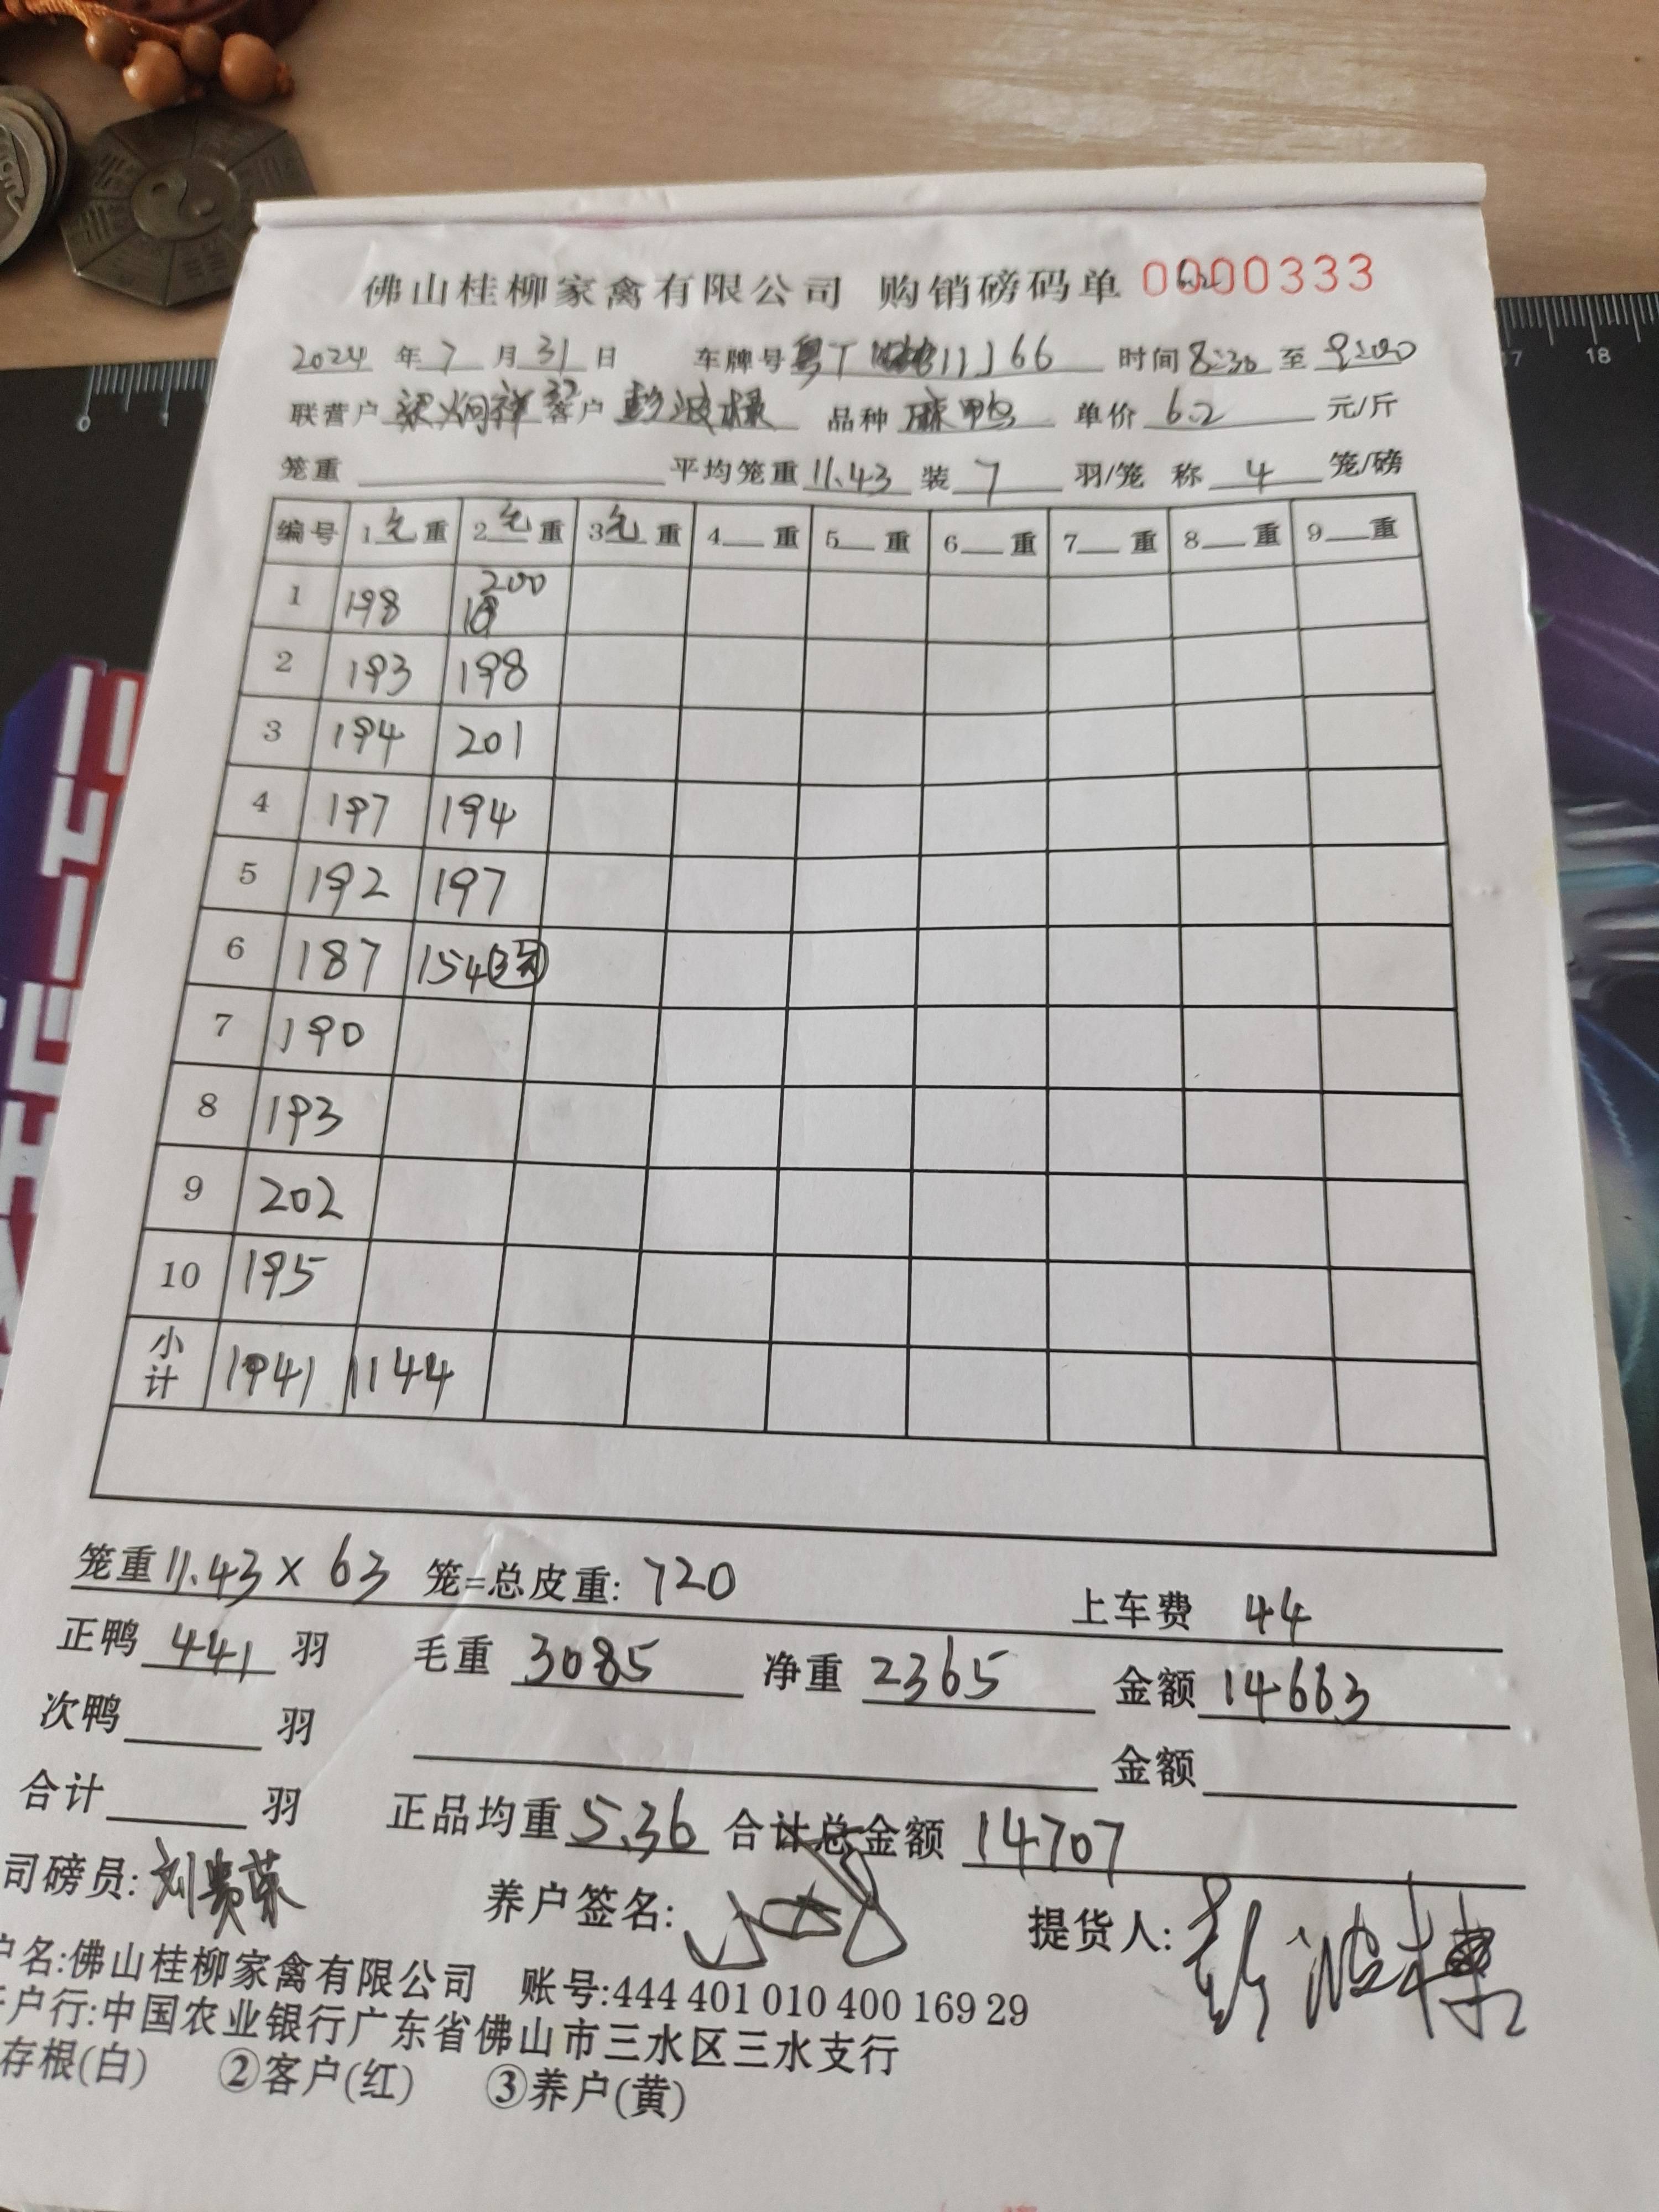 佛山桂柳家禽有限公司 购销磅码单 0000333
2024 年 7 月 31 日 车牌号 粤T 11J66 时间 8:30 至 9:00
联营户 梁炯祥 客户 彭波 品种 麻鸭 单价 6.2 元/斤
笼重 平均笼重 11.43 装 7 羽/笼 称 4 笼/磅
编号 1毛重 2毛重 3毛重 4 重 5 重 6 重 7 重 8 重 9 重
1 198 200
2 193 198
3 194 201
4 197 194
5 192 197
6 187 154 3笼
7 190
8 193
9 202
10 195
小计 1941 1144
笼重 11.43 × 63 笼=总皮重: 720 上车费 44
正鸭 441 羽 毛重 3085 净重 2365 金额 14663
次鸭 羽 金额
合计 羽 正品均重 5.36 合计总金额 14707
司磅员: 刘贵荣 养户签名: 提货人: 彭波
户名:佛山桂柳家禽有限公司 账号:444 401 010 400 169 29
户行:中国农业银行广东省佛山市三水区三水支行
存根(白) ②客户(红) ③养户(黄)
17 18